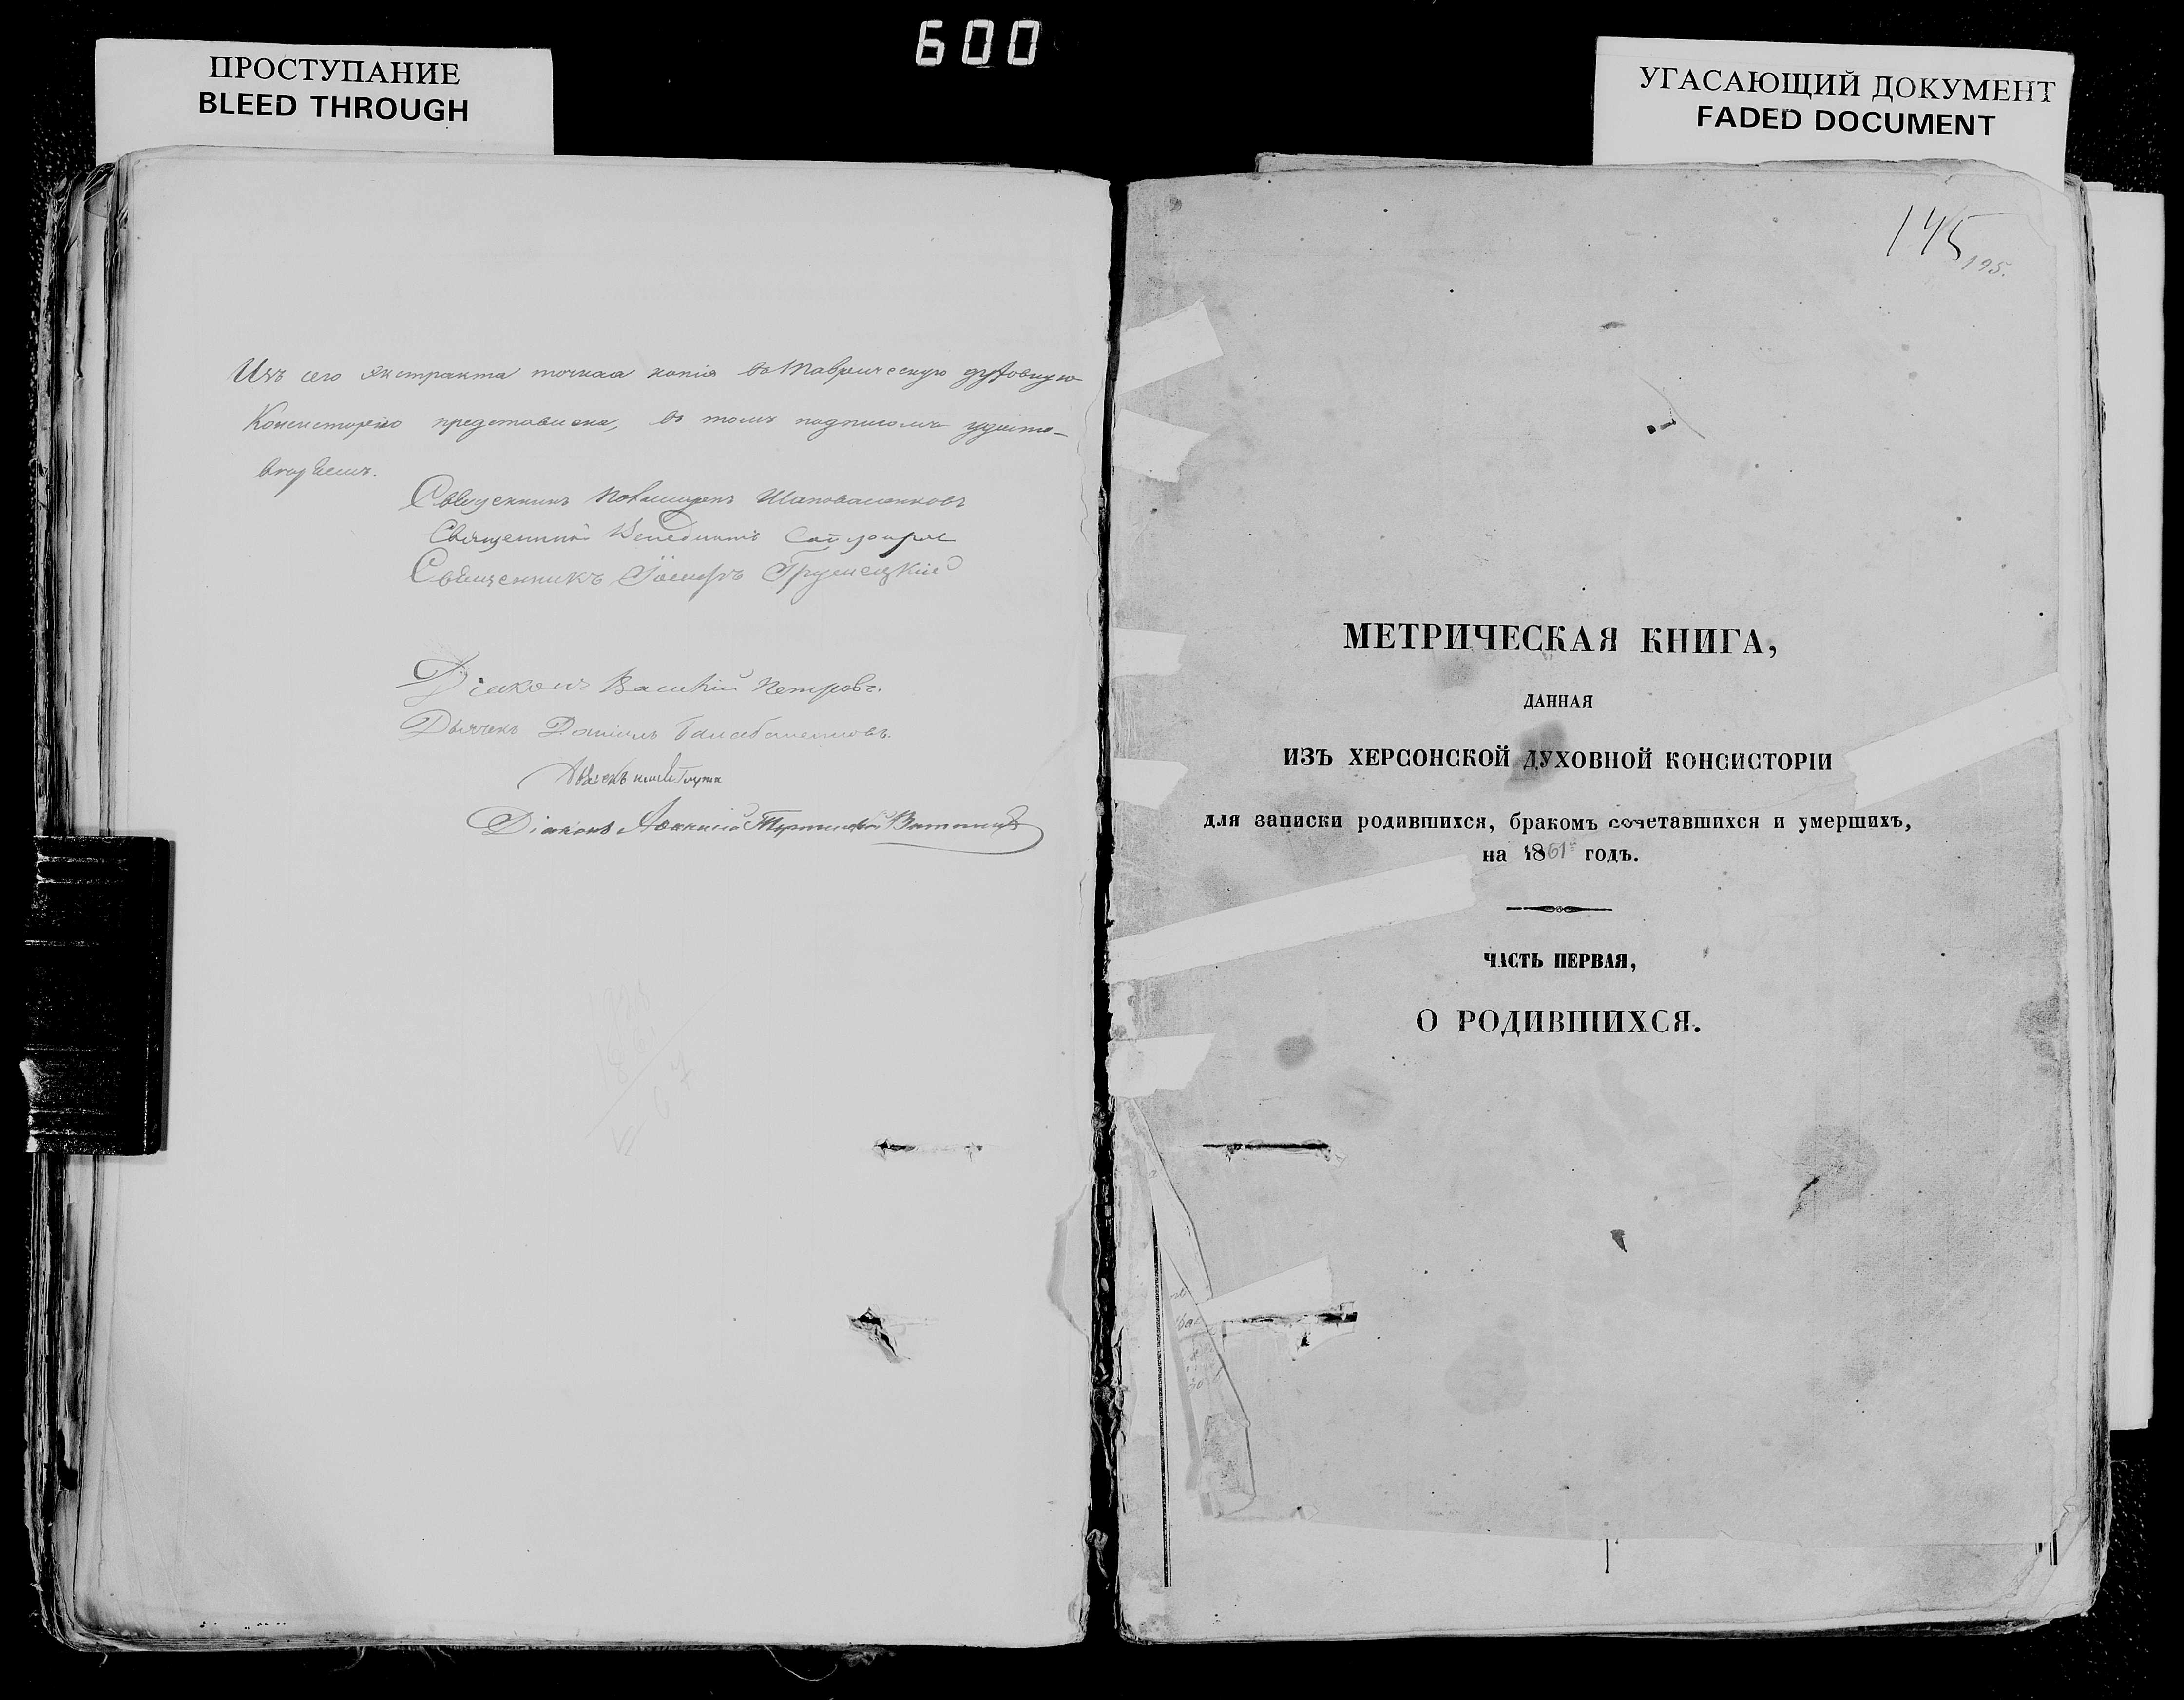 600
ПРОСТУПАНИЕ
BLEED THROUGH
УГАСАЮЩИЙ ДОКУМЕНТ
FADED DOCUMENT
Изъ сего экстракта точная копія въ Таврическую духовную
Консисторію представлена, въ томъ подписомъ удосто-
вѣряемъ.
Священникъ Шаповаленковъ
Священникъ Венедиктъ
Священникъ Іосифъ
Діаконъ Василій Петровъ.
Дьячекъ Даніилъ
Діаконъ
145
195.
МЕТРИЧЕСКАЯ КНИГА,
ДАННАЯ
ИЗЪ ХЕРСОНСКОЙ ДУХОВНОЙ КОНСИСТОРІИ
для записки родившихся, бракомъ сочетавшихся и умершихъ,
на 1861й годъ.
ЧАСТЬ ПЕРВАЯ,
О РОДИВШИХСЯ.